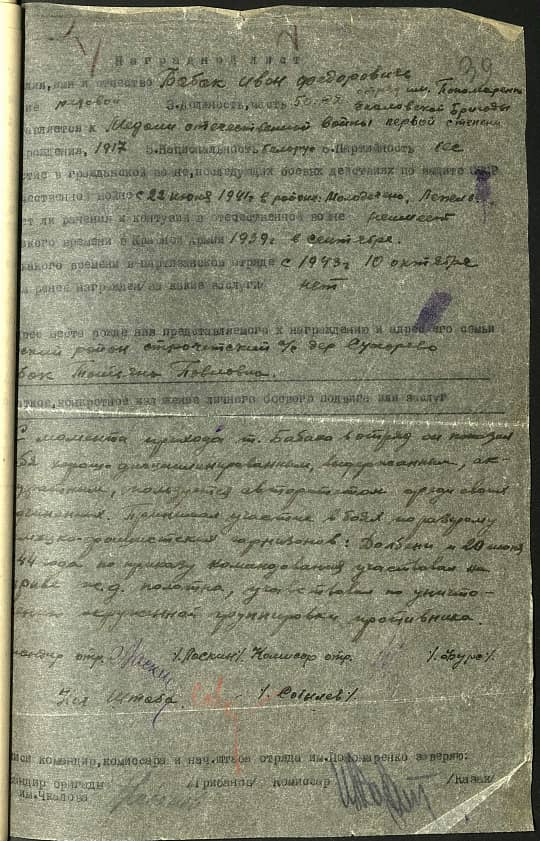 39
Наградной лист
имя и отчество Бабак Иван Федорович
рядовой 3.Должность,часть отряд им. Пономаренко
Чкаловской бригады
к Медали отечественной войны первой степени
рождения, 1917 5.Национальность Белорус 6.Партийность б/п
в гражданской войне, последующих боевых действиях по защите СССР
отечественной войне с 22 июня 1941г в районе Молодечно,
ли ранения и контузии в отечественной войне не имеет
какого времени в Красной Армии 1939г в сентябре.
какого времени в партизанском отряде с 1943г 10 октября
ранее награжден за какие заслуги нет
место рождения представляемого к награждению и адрес его семьи
ский район строчетский с/с дер Сухорево
бак Татьяна Павловна.
конкретное изложение личного боевого подвига или заслуг
С момента прихода т. Бабака в отряд он показал
себя хорошо дисциплинированным, выдержанным, ак-
куратным, пользуется авторитетом среди своих
Принимал участие в боях по разгрому
немецко-фашистских гарнизонов: Долбени и 20 июня
44 года по приказу командования участвовал на
ж.д. полотна, участвовал по уничто-
жению окруженной группировки противника.
командир отр. /Ласкин/ Комиссар отр. /Фурс/
Нач Штаба /Собылев/
командир,комиссара и нач.штаба отряда им.Пономаренко заверяю:
командир бригады /Грибанов/ Комиссар /Казак/
им.Чкалова